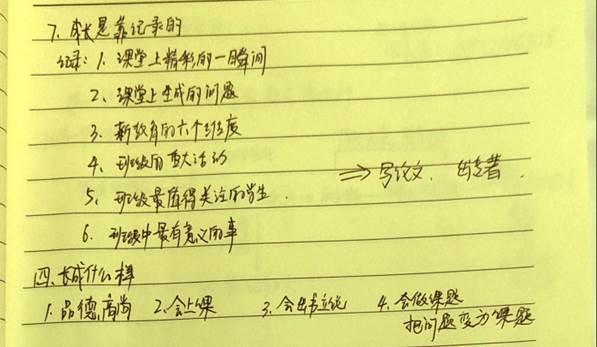 7. 成长是靠记录的
记录：1. 课堂上精彩的一瞬间
2、课堂上生成的问题
3. 新教育的六个维度
4. 班级的重大活动
⇒ 写论文、出专著.
5、班级最值得关注的学生.
6. 班级中最有意义的事
四. 长成什么样
1. 品德高尚 2. 会上课 3. 会出书立说 4. 会做课题
把问题变为课题